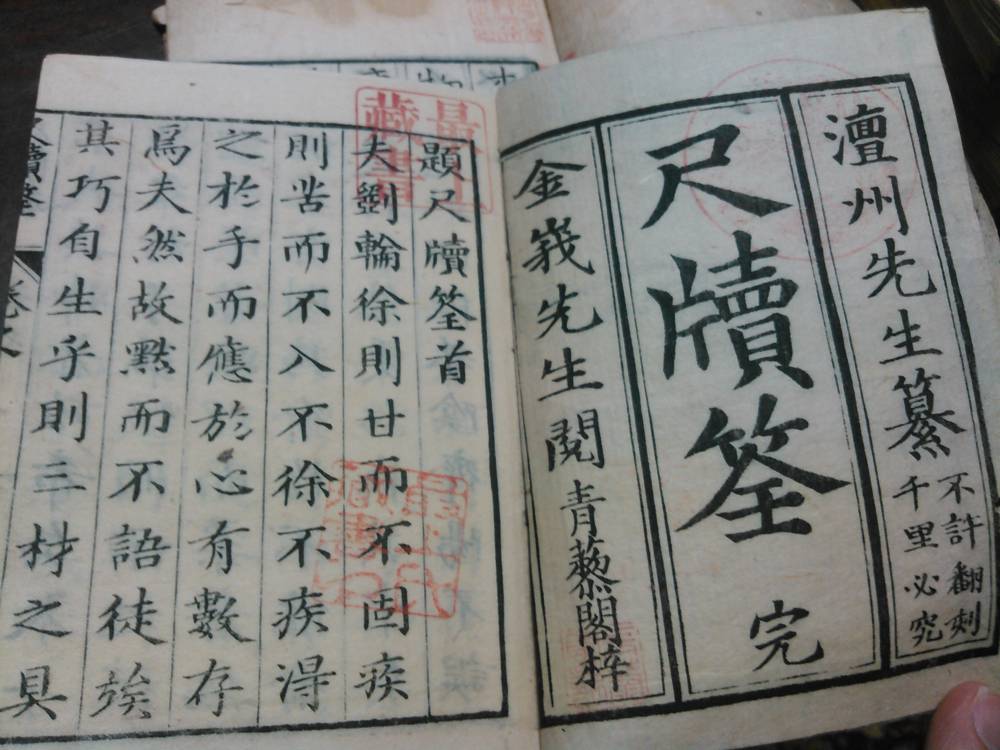 澶州先生纂
不許翻刻
千里必究
尺牘筌 完
金峩先生閱 青藜閣梓
題尺牘筌首
夫劉輪徐則甘而不固疾
則苦而不入不徐不疾淂
之於手而應於心有數存
焉夫然故默而不語徒
其巧自生乎則三材之具
牘筌
藏書